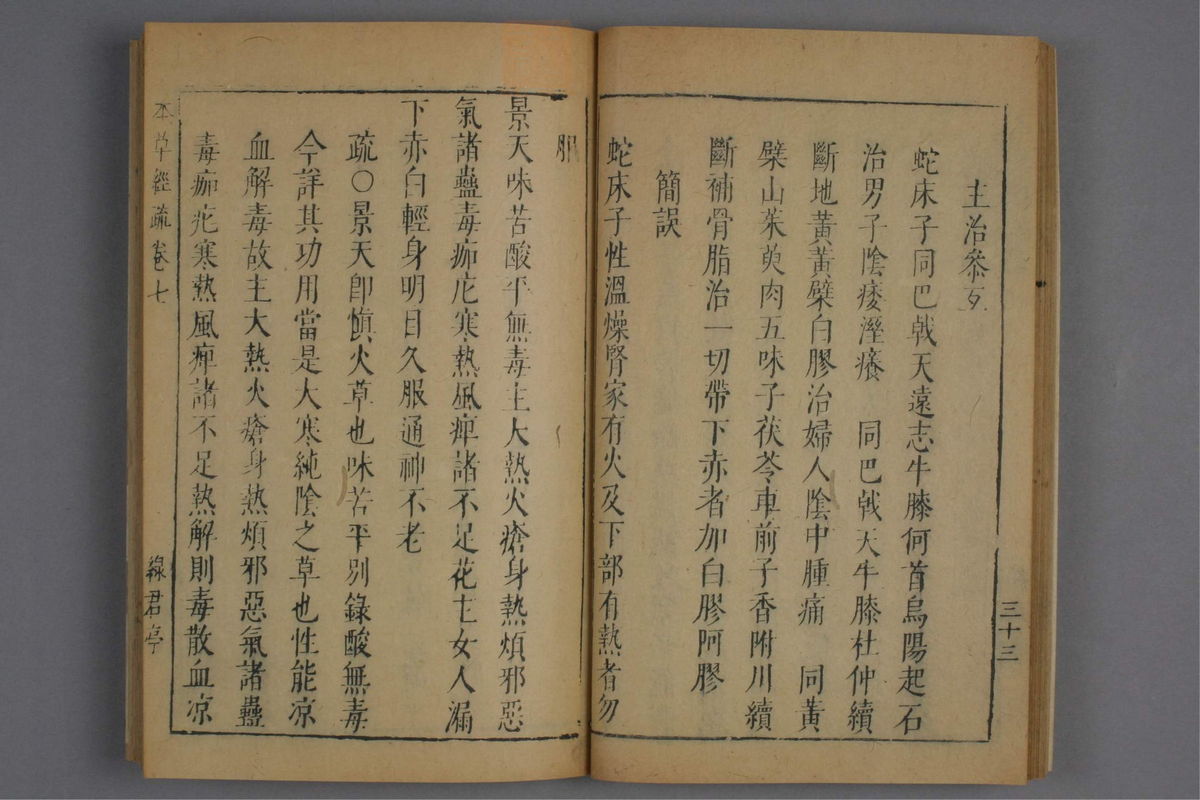 主治參互
蛇床子同巴戟天遠志牛膝何首烏陽起石
治男子陰痿溼癢　同巴戟天牛膝杜仲續
斷地黃黃檗白膠治婦人陰中腫痛　同黃
檗山茱萸肉五味子茯苓車前子香附川續
斷補骨脂治一切帶下赤者加白膠阿膠
簡誤
蛇床子性溫燥腎家有火及下部有熱者勿
三十三
服
景天味苦酸平無毒主大熱火瘡身熱煩邪惡
氣諸蠱毒痂疕寒熱風痺諸不足花主女人漏
下赤白輕身明目久服通神不老
疏○景天卽愼火草也味苦平別錄酸無毒
今詳其功用當是大寒純陰之草也性能凉
血解毒故主大熱火瘡身熱煩邪惡氣諸蠱
毒痂疕寒熱風痺諸不足熱解則毒散血凉
本草經疏卷七
綠君亭